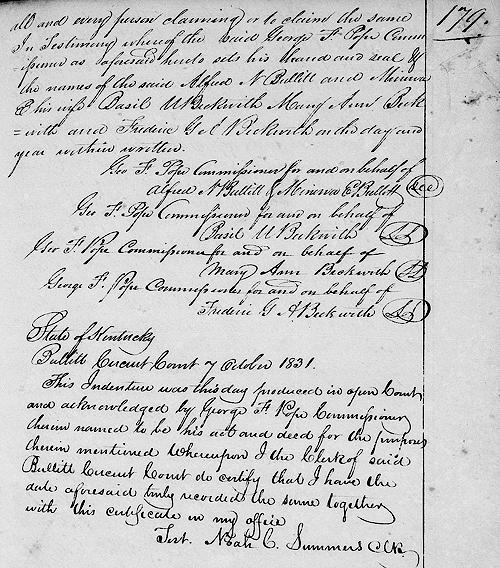 179.
all and every person claiming or to claim the same
In Testimony whereof the said George F Pope Comm
issioner as aforesaid hereto sets his hand and seal &
the names of the said Alfred N Bullitt and Minerva
E his wife Basil U Beckwith Mary Ann Beck
=with and Frederic G A Beckwith on the day and
year within written.
Geo F. Pope Commissioner for and on behalf of
Alfred N Bullitt & Minerva E Bullitt
Geo F. Pope Commissioner for and on behalf of
Basil U Beckwith LS
Geo F Pope Commissioner for and on behalf of
Mary Ann Beckwith LS
George F. Pope Commissioner for and on behalf of
Frederic G A. Beckwith LS
State of Kentucky
Bullitt Circuit Court 7 October 1831.
This Indenture was this day produced in open Court
and acknowledged by George F Pope Commissioner
therein named to be his act and deed for the purposes
therein mentioned Whereupon I the Clerk of said
Bullitt Circuit Court do certify that I have the
date aforesaid truly recorded the same together
with this certificate in my office
Test. Noah C. Summers Clk.